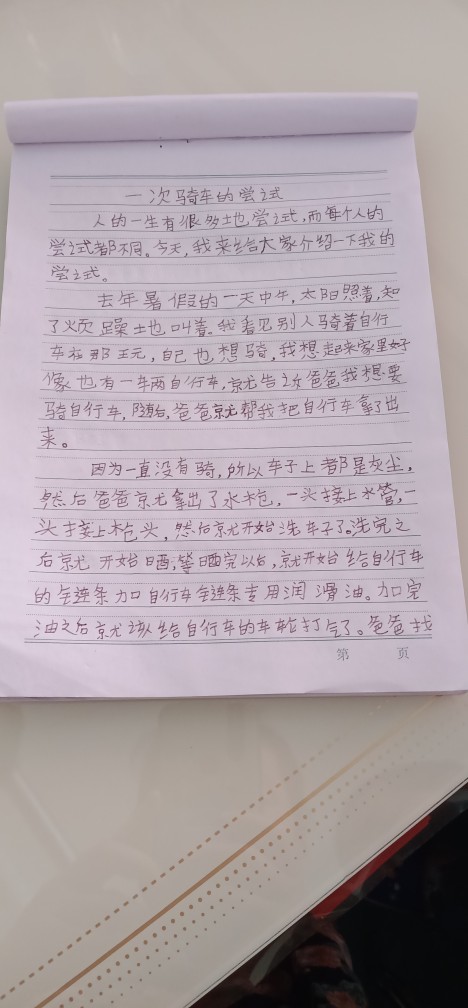 一次骑车的尝试
人的一生有很多地尝试,而每个人的
尝试都不同。今天,我来给大家介绍一下我的
尝试。
去年暑假的一天中午,太阳照着,知
了烦躁地叫着。我看见别人骑着自行
车在那玩,自己也想骑,我想起来家里好
像也有一车两自行车,就告诉爸爸我想要
骑自行车,随后,爸爸就帮我把自行车拿了出
来。
因为一直没有骑,所以车子上都是灰尘,
然后爸爸就拿出了水枪,一头接上水管,一
头接上枪头,然后就开始洗车子了。洗完之
后就开始晒,等晒完以后,就开始给自行车
的链条加自行车链条专用润滑油。加完
油之后就该给自行车的车轮打气了。爸爸找
第 页